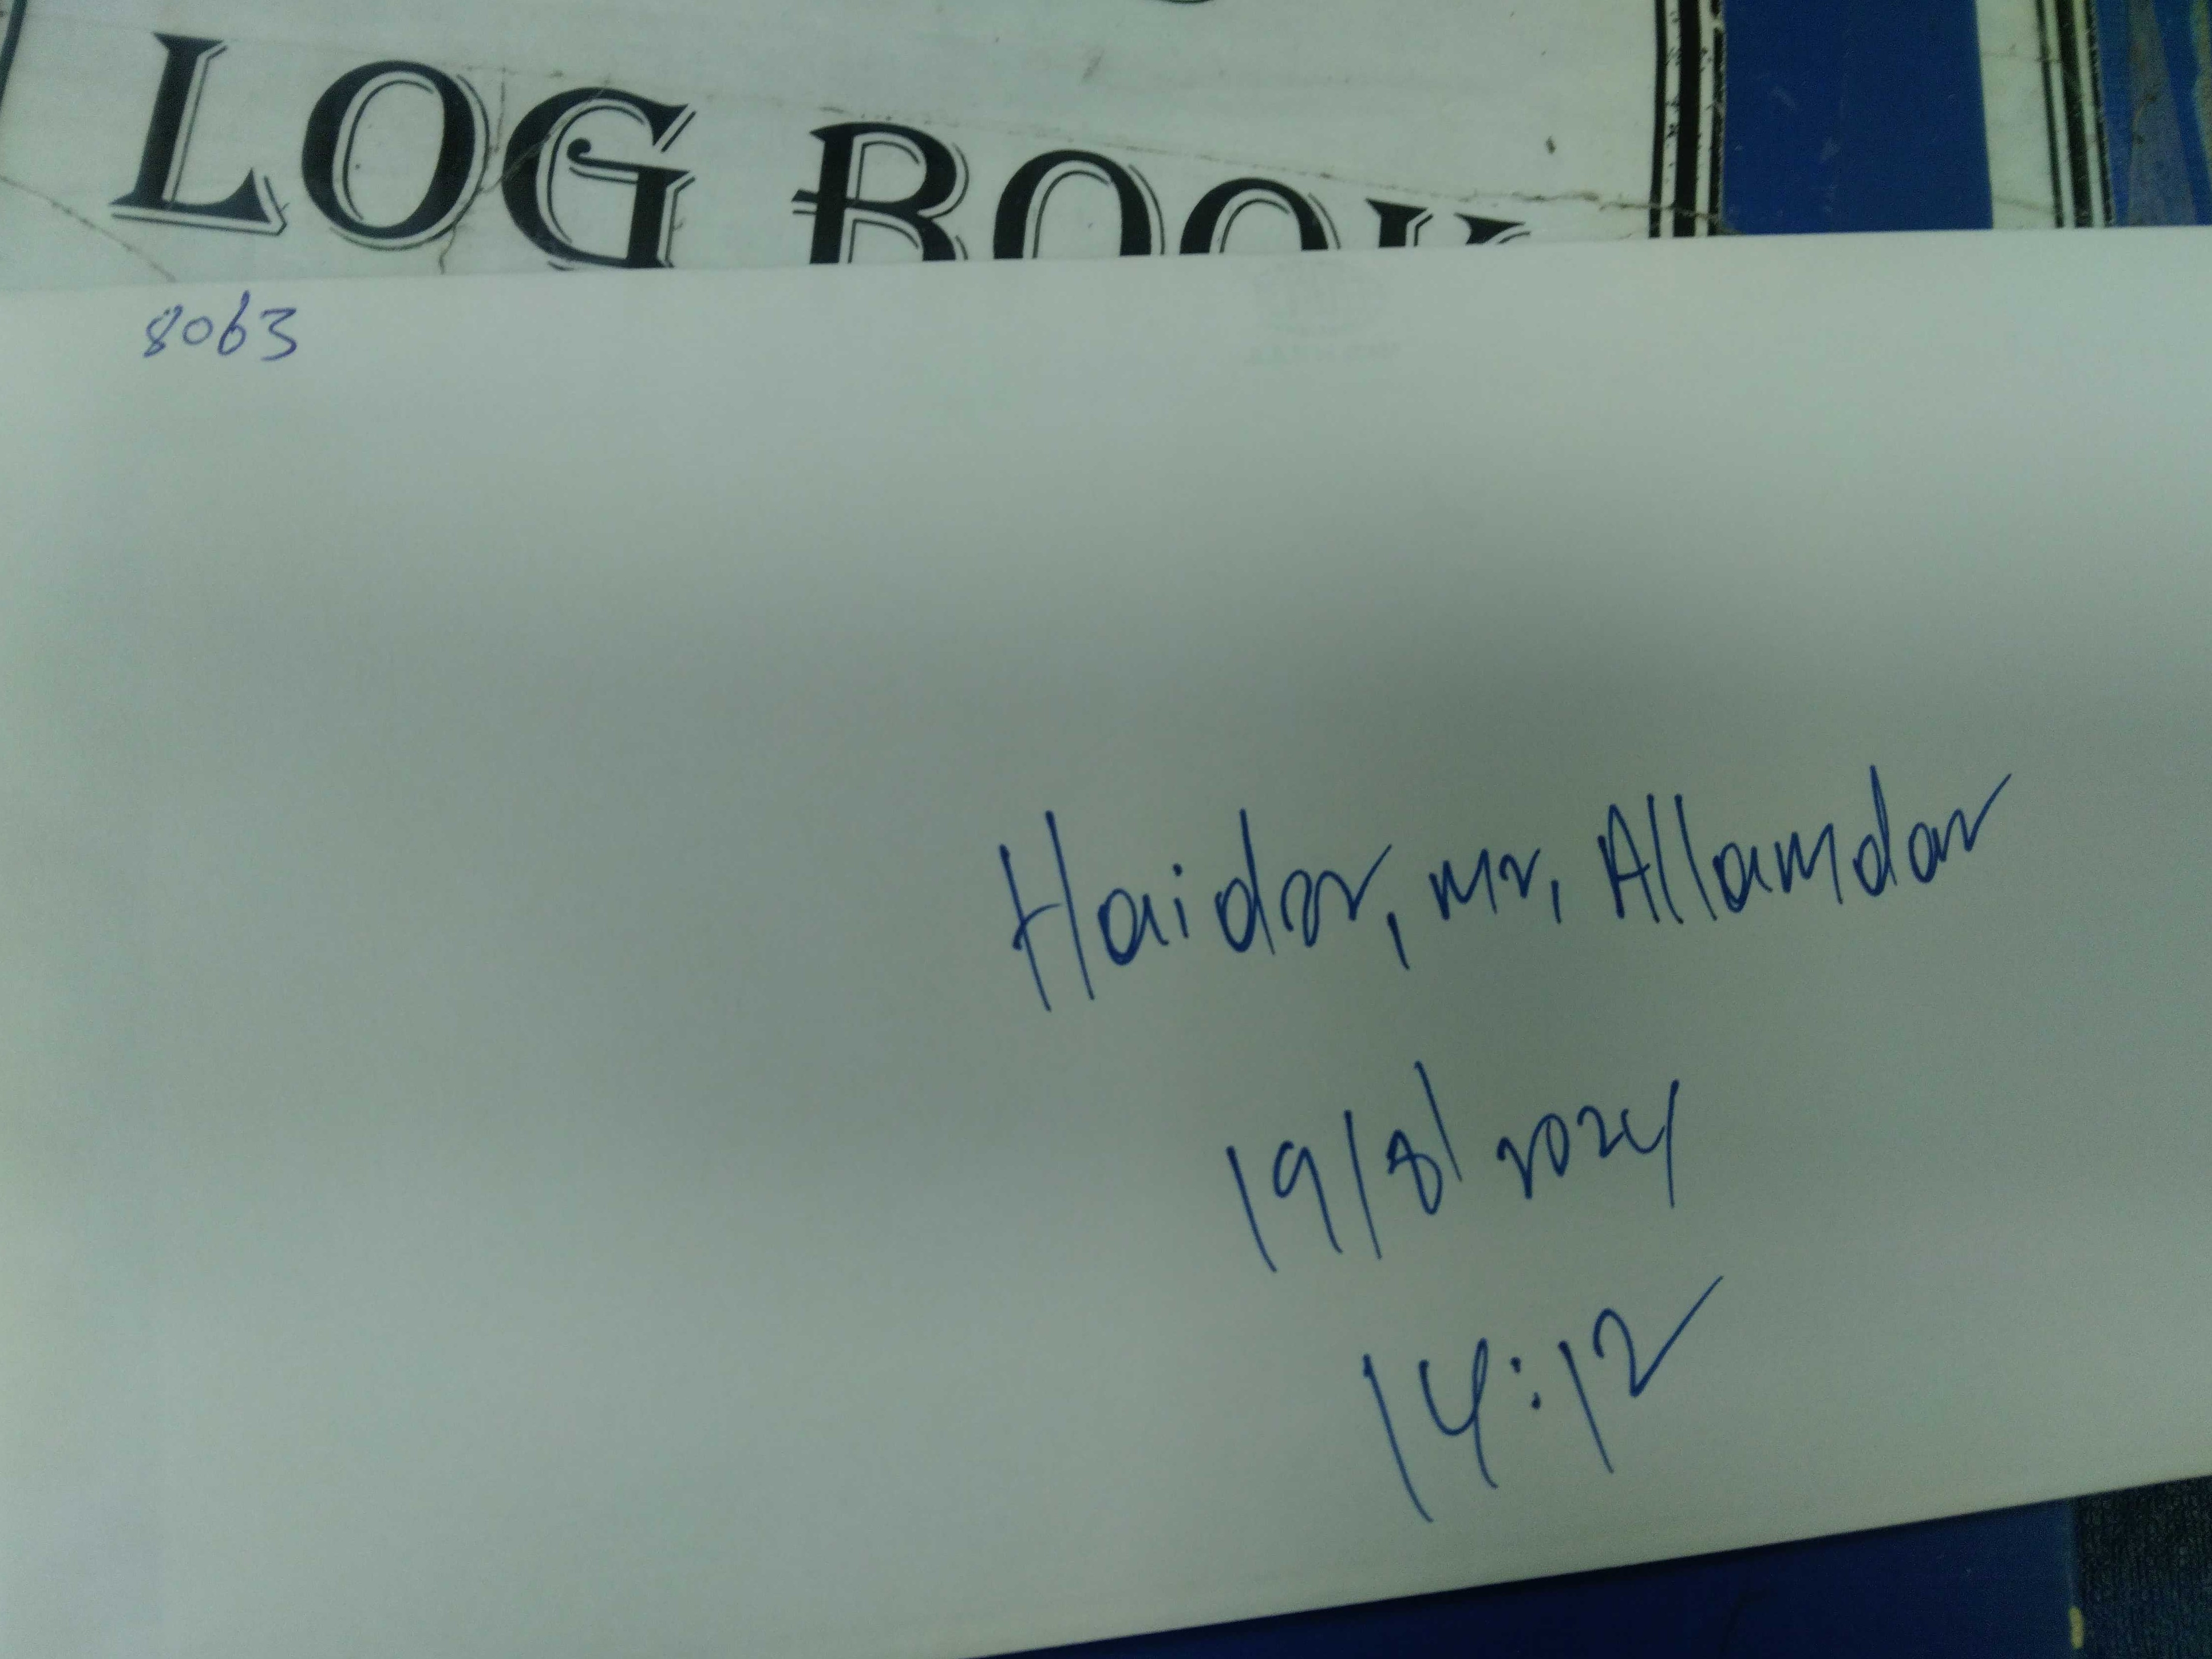 LOG BOOK
8063
Haidar, Mr, Allamdar
19/8/2024
14:12